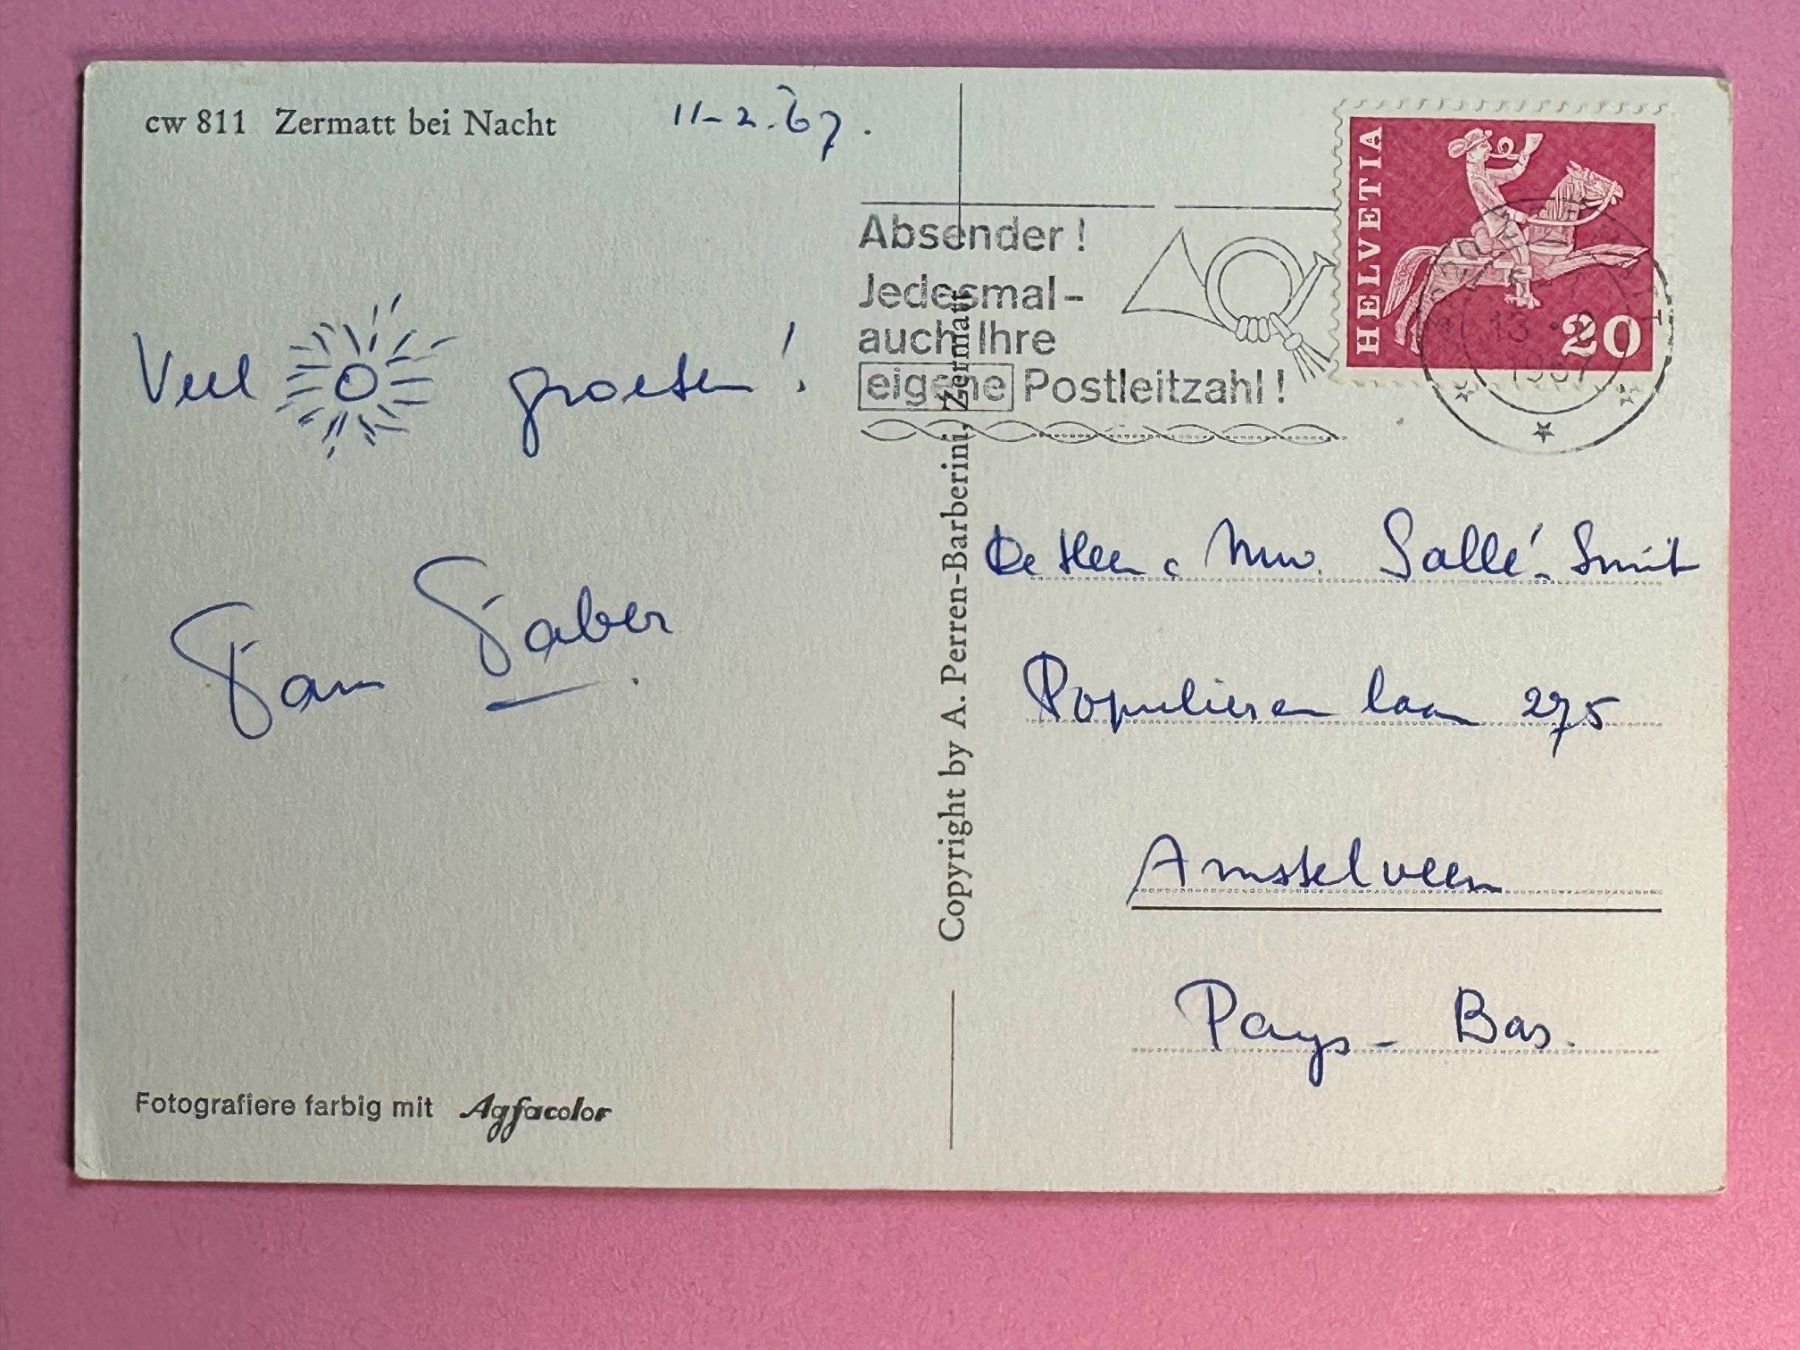 cw 811 Zermatt bei Nacht
11-2.'67.
Veel groeten!
Tom Faber.
Fotografiere farbig mit Agfacolor
Copyright by A. Perren-Barberini, Zermatt
Absender!
Jedesmal-
auch Ihre
eigene Postleitzahl!
HELVETIA
20
13
1967
De Heer & Mw. Sallé-Smit
Populierenlaan 275
Amstelveen
Pays-Bas.